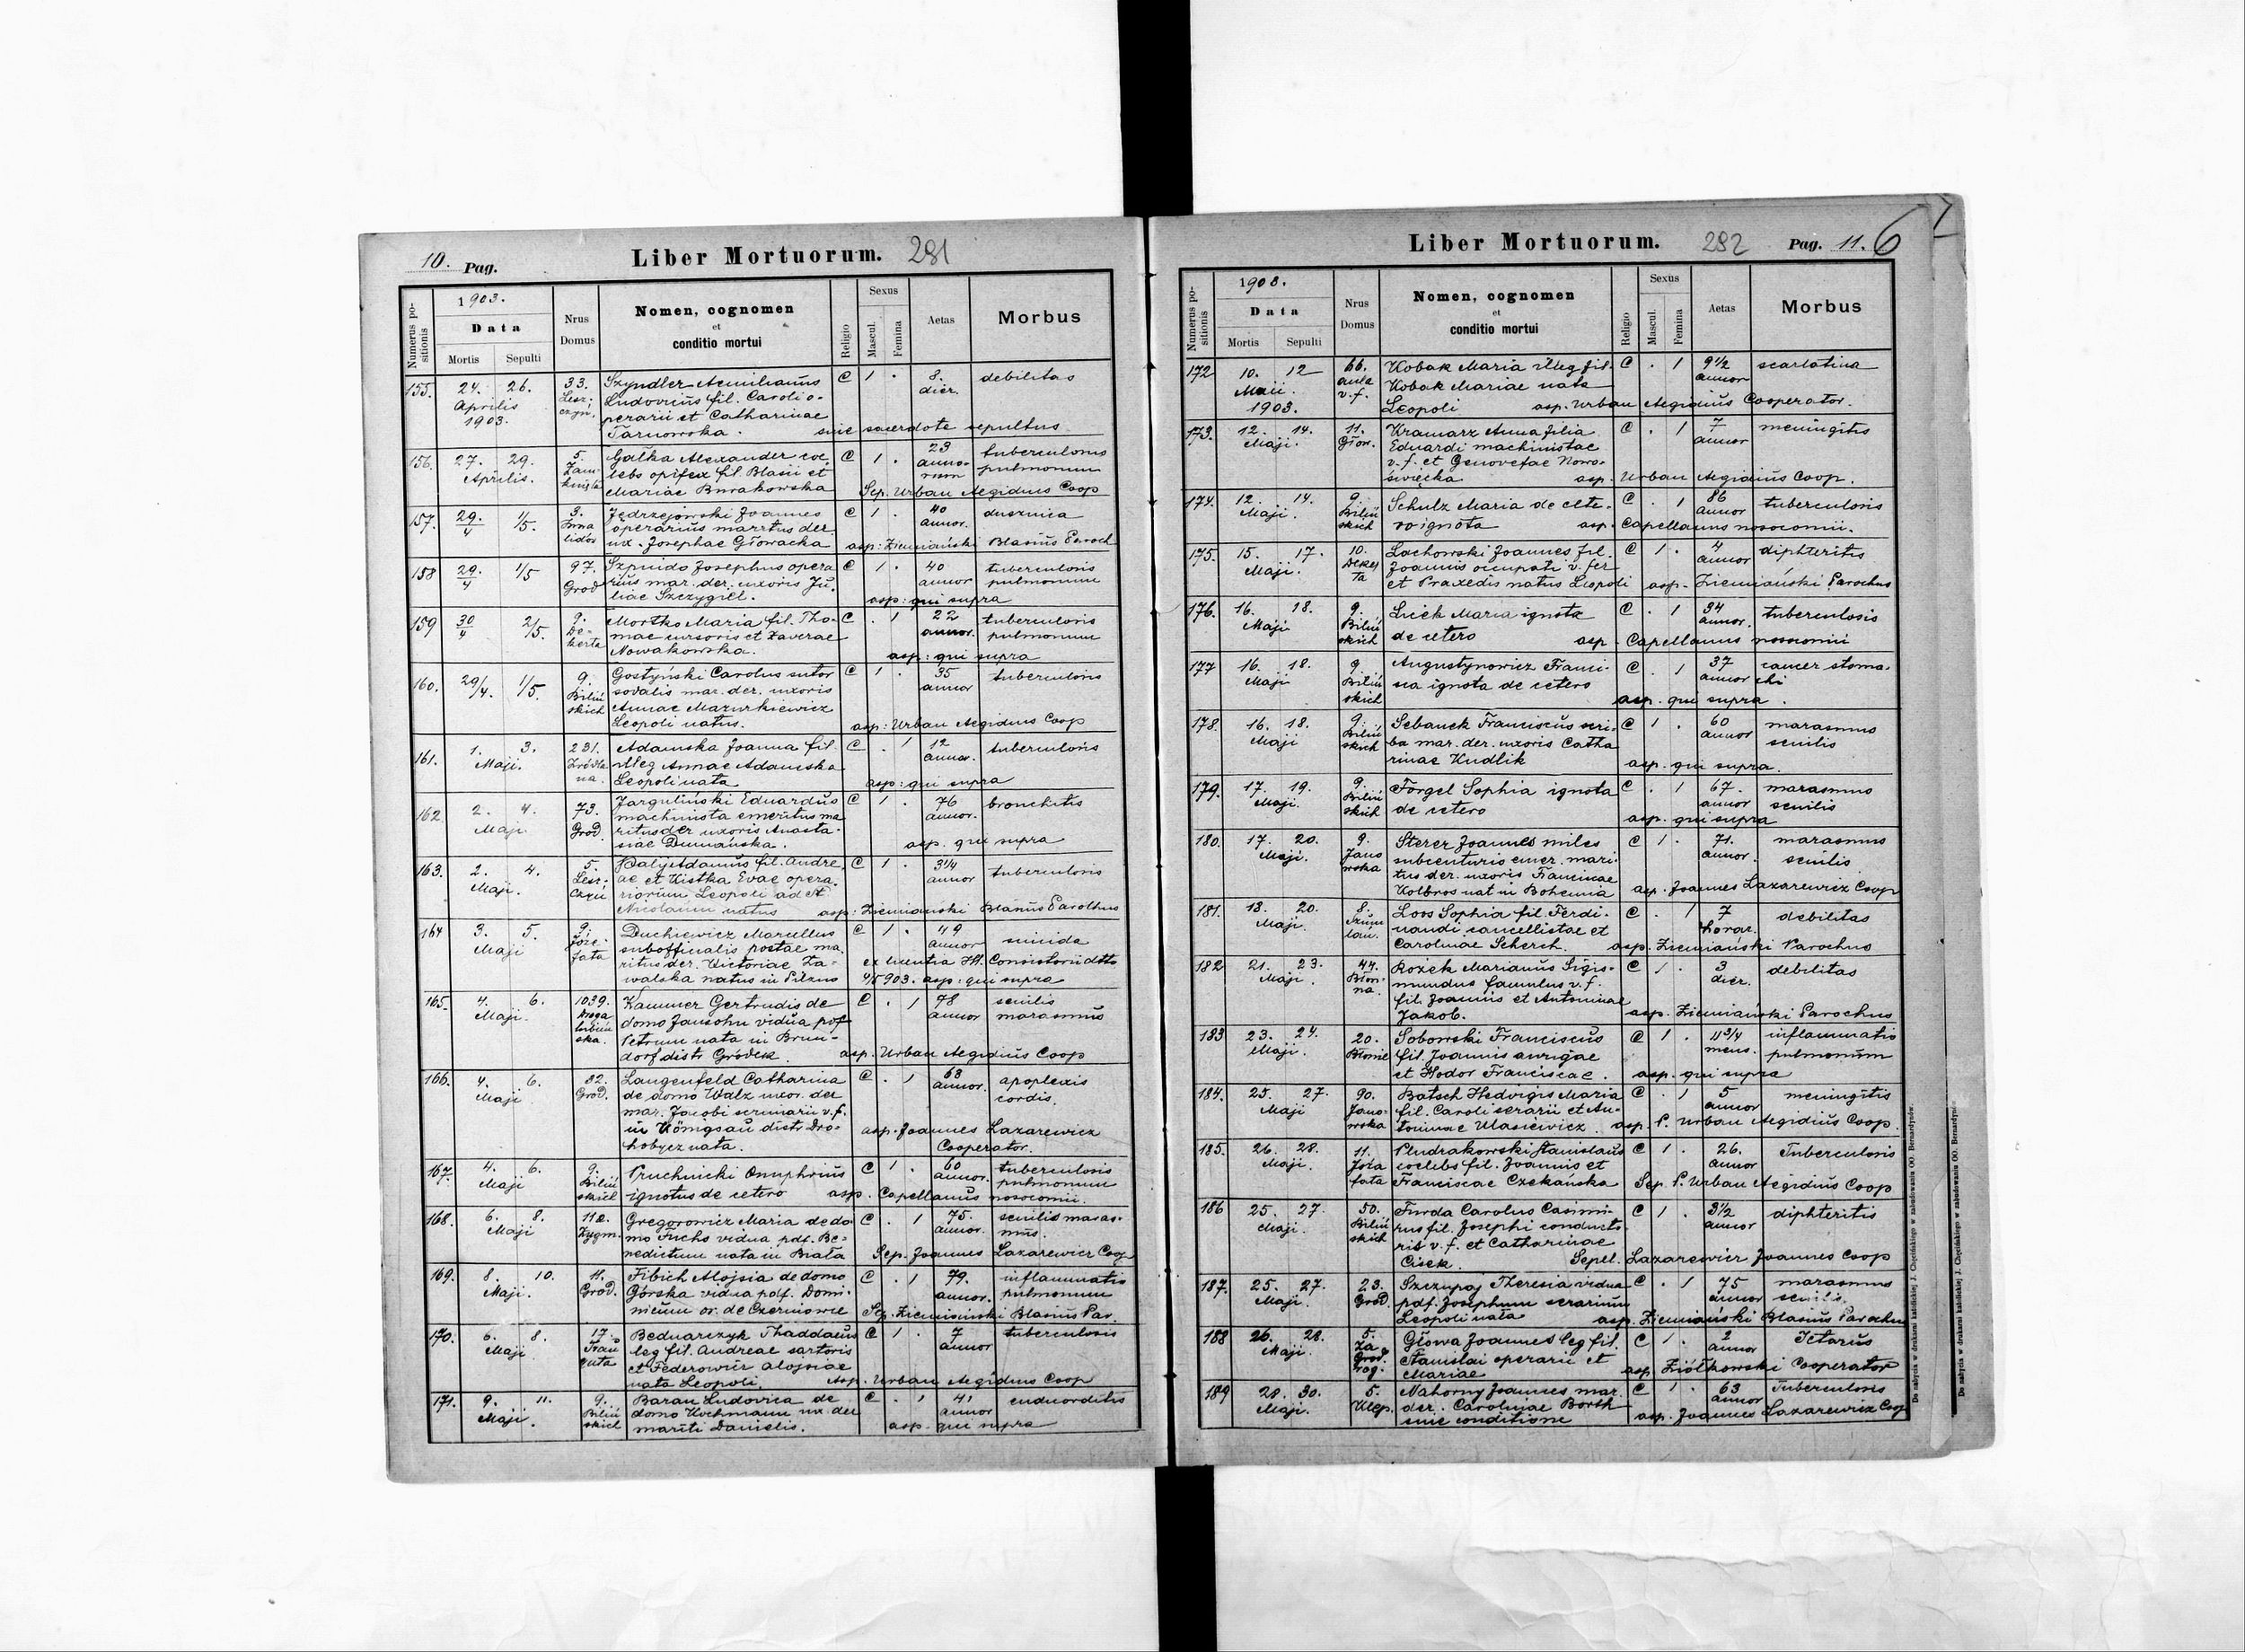 10. Pag. Liber Mortuorum. 281
Numerus positionis
1903.
Data
Mortis Sepulti
Nrus Domus
Nomen, cognomen
et
conditio mortui
Religio
Sexus
Mascul. Femina
Aetas
Morbus
155. 24. 26. 33. Szyndler Aemilianus C 1 . 8. debilitas
Aprilis Lesz- Ludovicus fil. Caroli o- dier.
1903. czyń. perarii et Catharinae
Tarnowska. sine sacerdote sepultus
156. 27. 29. 5. Gałka Alexander coe- C 1 . 23 tuberculosis
Aprilis. Zam- lebs opifex fil. Blasii et anno- pulmonum
knięta Mariae Burakowska rum Sep. Urban Aegidius Coop
157. 29/4 1/5. 3. Jędrzejowski Joannes C 1 . 40 dusznica
Inwa operarius maritus der. annor.
lidów ux. Josephae Głowacka asp: Ziemiański Blasius Paroch
158 29/4 1/5 97. Szpindo Josephus opera C 1 . 40 tuberculosis
Grod rius mar. der. uxoris Ju- annor pulmonum
liae Szczygieł. asp: qui supra
159 30/4 2/5. 9. Mortko Maria fil. Tho- C . 1 22 tuberculosis
De- mae cursoris et Xaverae annor. pulmonum
kerta Nowakowska. asp: qui supra
160. 29/4. 1/5. 9. Gostyński Carolus sutor C 1 . 35 tuberculosis
Biliń sodalis mar. der. uxoris annor
skich Annae Mazurkiewicz
Leopoli natus. asp: Urban Aegidius Coop
161. 1. 3. 231. Adamska Joanna fil. C . 1 12 tuberculosis
Maji. Źródla illeg Annae Adamska annor.
na. Leopoli nata asp: qui supra
162 2. 4. 73. Jarguliński Eduardus C 1 . 76 bronchitis
Maji Grod. machinista emeritus ma annor.
ritus der uxoris Anasta-
siae Dumańska. asp. qui supra
163. 2. 4. 5. Adamus fil. Andre C 1 . 3 1/4 tuberculosis
Maji. Lesz- ae et Kistka Evae opera- annor
czyń riorum Leopoli ad St
Nicolaum natus asp: Ziemianski Blasius Parochus
164 3. 5. 9. Duchiewicz Marcellus C 1 . 49 suicida
Maji Joze- subofficialis postae ma. annor
fata ritus der. Victoriae Za- ex licentia Ill. Consistorii ddto
walska natus in Pilzno 4/5 903. asp: qui supra
165. 4. 6. 1039. Kammer Gertrudis de C . 1 78 senilis
Maji. droga domo Jansohn vidua pdf annor marasmus
Petrum nata in Brun-
ska. dorf distr Gródek. asp. Urban Aegidius Coop
166. 4. 6. 32. Langenfeld Catharina C . 1 63 apoplexis
Maji Grod. de domo Walz uxor. der annor. cordis.
mar. Jacobi scrinarii v. f.
in Königsau distr Dro- asp. Joannes Lazarewicz
hobycz nata. Cooperator.
167. 4. 6. 9. Pruchnicki Onuphrius C 1 . 60 tuberculosis
Maji Biliń ignotus de cetero annor. pulmonum
skich asp. Capellanus nosocomii.
168. 6. 8. 112. Gregorowicz Maria de do C . 1 75. senilis maras-
Maji Zygm. mo Fuchs vidua pdf. Be- annor. mus.
nedictum nata in Biała Sep. Joannes Lazarewicz Coop
169. 8. 10. 11. Fibich Alojsia de domo C . 1 79. inflammatio
Maji. Grod. Górska vidua pdf. Domi- annor. pulmonum
nicum or. de Czerniowce Sep. Ziemiański Blasius Par.
170. 6. 8. 17. Bednarczyk Thaddaeus C 1 . 7 tuberculosis
Maji Trau leg fil. Andreae sartoris annor
guta et Federowicz Alojsiae
nata Leopoli. Asp. Urban Aegidius Coop
171. 9. 11. 9. Baran Ludovica de C . 1 41 endcorditis
Maji. Biliń domo Kochmann ux der annor
skich mariti Danielis. asp. qui supra
Liber Mortuorum. 282 Pag. 11. 6
Numerus positionis
1903.
Data
Mortis Sepulti
Nrus Domus
Nomen, cognomen
et
conditio mortui
Religio
Sexus
Mascul. Femina
Aetas
Morbus
172 10. 12 66. Kobak Maria illeg fil. C . 1 9 1/2 scarlatina
Maii. aula Kobak Mariae nata annor
1903. v. f. Leopoli asp. Urban Aegidius Cooperator.
173. 12. 14. 11. Kramarz Anna filia C . 1 7 meningitis
Maji. Głow. Eduardi machinistae annor
v. f. et Genovefae Nowo-
święcka asp. Urban Aegidius Coop.
174. 12. 14. 9. Schulz Maria de cete- C . 1 86 tuberculosis
Maji. Biliń ro ignota annor
skich asp. Capellanus nosocomii.
175. 15. 17. 10. Lachowski Joannes fil. C 1 . 4 diphteritis
Maji. Deker Joannis occupati v. fer annor
ta et Praxedis natus Leopoli asp. Ziemiański Parochus
176. 16. 18. 9. Lisiek Maria ignota C . 1 34 tuberculosis
Maji Biliń de cetero annor.
skich asp. Capellanus nosocomii
177 16. 18. 9. Augustynowicz Franci- C . 1 37 cancer stoma-
Maji Biliń sca ignota de cetero annor chi
skich asp. qui supra.
178. 16. 18. 9. Sebanek Franciscus scri- C 1 . 60 marasmus
Maji Biliń ba mar. der. uxoris Catha annor senilis
skich rinae Kudlik asp. qui supra.
179. 17. 19. 9. Förgel Sophia ignota C . 1 67. marasmus
Maji. Biliń de cetero annor senilis
skich asp. qui supra
180. 17. 20. 9. Sterer Joannes miles C 1 . 71. marasmus
Maji. Jano subcenturio emer. mari- annor. senilis
wska tus der. uxoris Franciscae
Kolbros nat in Bohemia asp. Joannes Lazarewicz Coop
181. 18. 20. 8. Loos Sophia fil. Ferdi- C . 1 7 debilitas
Maji. nandi cancellistae et horar.
Carolinae Scherch. asp. Ziemiański Parochus
182 21. 23. 44. Rożek Marianus Sigis- C 1 . 3 debilitas
Maji. Błon- mundus famulus v. f. dier.
na. fil. Joannis et Antoninae
Jakob. asp. Ziemiański Parochus
183 23. 24. 20. Soborski Franciscus C 1 . 11 3/4 inflammatio
Maji. Błonie fil. Joannis aurigae mens. pulmonum
et Hodor Franciscae. asp. qui supra
184. 25. 27. 90. Batsch Hedvigis Maria C . 1 5 meningitis
Maji Jano- fil. Caroli serarii et An- annor
wska toninae Ulasiewicz. asp. P. Urban Aegidius Coop.
185. 26. 28. 11. Pludrakowski Stanislaus C 1 . 26. Tuberculosis
Maji. Józa coelebs fil. Joannis et annor
fata Franciscae Czekańska Sep. P. Urban Aegidius Coop
186 25. 27. 50. Furda Carolus Casimi- C 1 . 3 1/2 diphteritis
Maji. Biliń rus fil. Josephi conducto annor
skich ris v. f. et Catharinae
Cisek. Sepel. Lazarewicz Joannes Coop
187. 25. 27. 23. Szczupaj Theresia vidua C . 1 75 marasmus
Maji. Grod. pdf. Josephum serarium annor senilis.
Leopoli nata asp. Ziemiański Blasius Parochus
188 26. 28. 5. Głowa Joannes leg fil. C 1 . 2 Ictarus
Maji. Za Stanislai operarii et annor
Grod. Mariae asp. Ziółkowski Cooperator
rog.
189 28. 30. 5. Nahorny Joannes mar. C 1 . 63 Tuberculosis
Maji. Klep. der. Carolinae Borth annor
sine conditione asp. Joannes Lazarewicz Coop
Do nabycia w drukarni katolickiej J. Chęcińskiego w zabudowaniu OO. Bernardynów.
Do nabycia w drukarni katolickiej J. Chęcińskiego w zabudowaniu OO. Bernardynów.